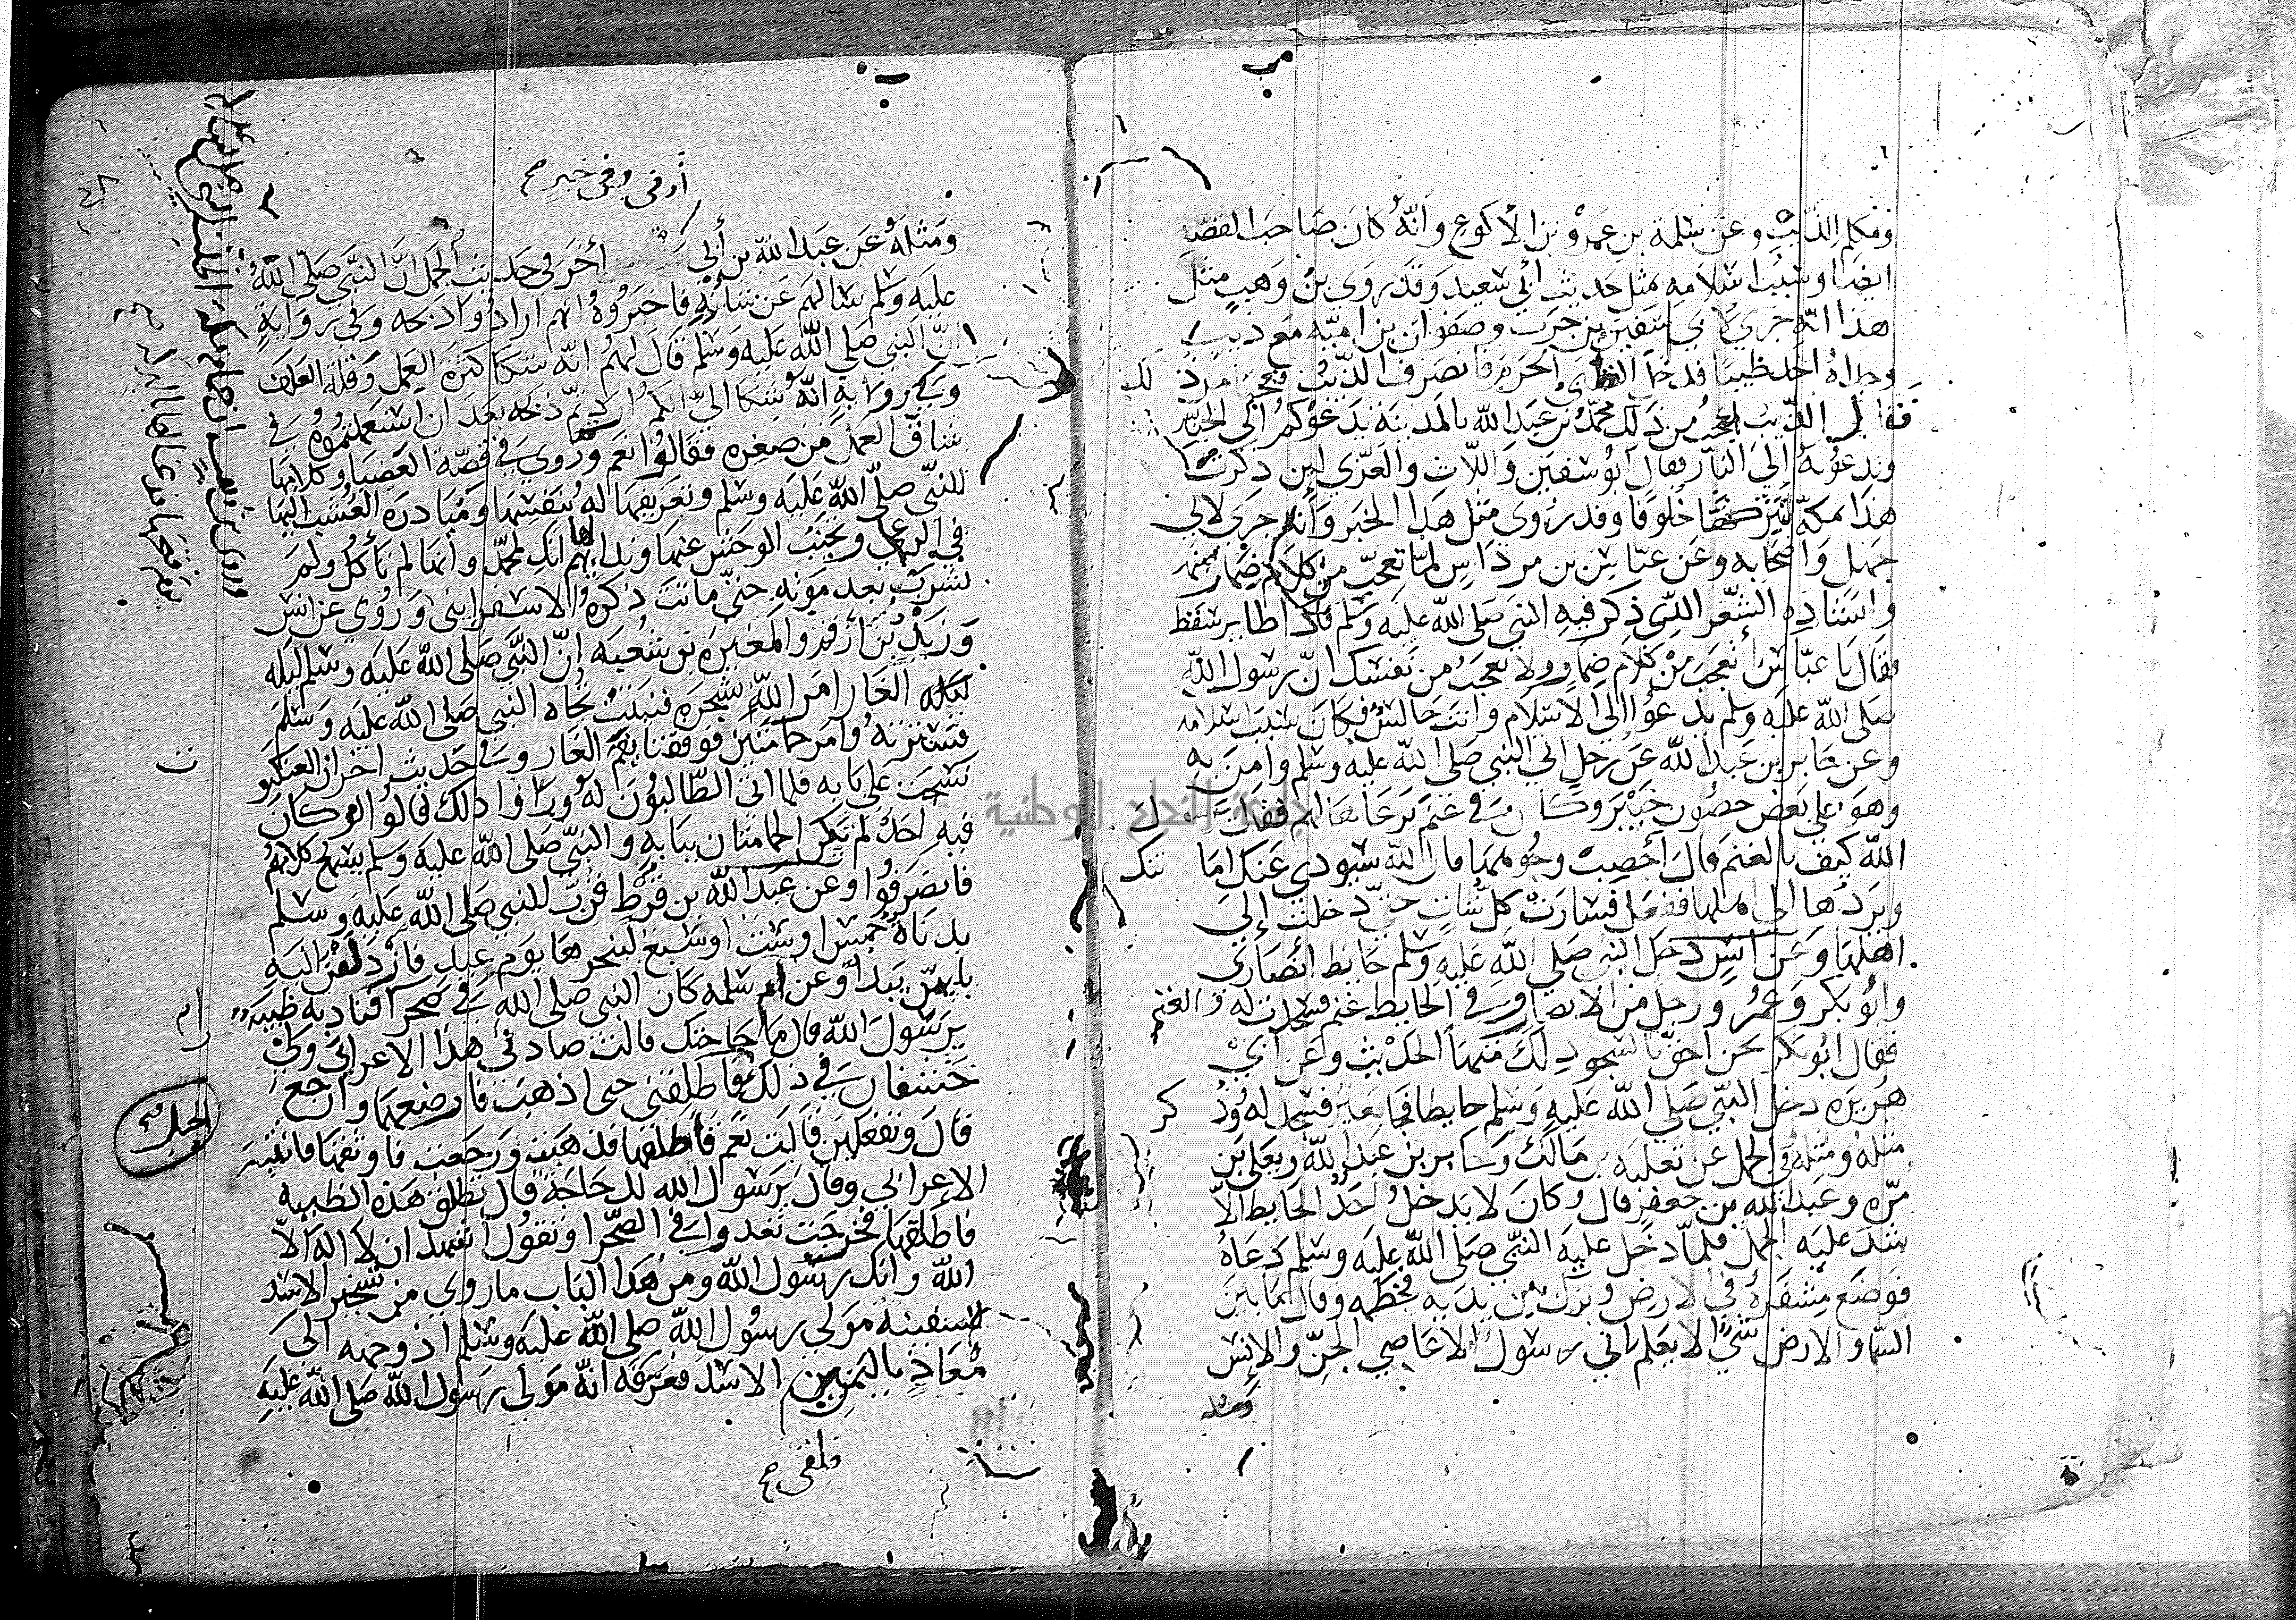 ومكلم الذيب وعن سلمة بن عمرو بن الاكوع وانه كان صاحب القصه
ايضا وسبب اسلامه بمثل حديث أبي سعيد وقد روى بن وهب مثل
هذا انه جري لابي سفين بن حرب وصفوان بن اميه مع ذيب
وجداه اخذ ظبيا فدخل الظبى الحرم فانصرف الذيب فعجبا من ذلك
فقال الذيب اعجب من ذلك محمد بن عبد الله بالمدينة يدعوكم الى الجنه
وتدعونه إلى النار فقال ابو سفين واللات والعزي لين ذكرت
هذا بمكة لتتركنها خلوفا وقد روى مثل هذا الخبر وأنه جري لابي
جهل واصحابه وعن عباس بن مرداس لما تعجب من كلام ضمار صنمه
وانشاده الشعر الذي ذكر فيه النبي صلى الله عليه وسلم فاذا طاير سقط
فقال يا عباس أتعجب من كلام ضمار ولا تعجب من نفسك ان رسول الله
صلى الله عليه وسلم يدعوا إلى الاسلام وانت جالس فكان سبب اسلامه
وعن جابر بن عبد الله عن رجل اتى النبي صلى الله عليه وسلم وامن به
وهو على بعض حصون خيبر وكان في غنم يرعاها لهم فقال يرسول
الله كيف بالغنم قال أحصب وجوهها فان الله سيودي عنك اماننك
ويردها الى اهلها ففعل فسارت كل شاة حتى دخلت إلى
اهلها وعن انس دخل النبي صلى الله عليه وسلم حايط أنصاري
وابو بكر وعمر ورجل من الانصار وفي الحايط غنم فسجدت له الغنم
فقال ابو بكر نحن احق بالسجود لك منها الحديث وعن ابي
هريره دخل النبي صلى الله عليه وسلم حايطا فجا بعير فسجد له وذكر
مثله ومثله في الجمل عن ثعلبه بن مالك وجابر بن عبد الله ويعلى بن
مره وعبد الله بن جعفر قال وكان لا يدخل أحد الحايط الا
شد عليه الجمل فلما دخل عليه النبي صلى الله عليه وسلم دعاه
فوضع مشفره في الارض وبرك بين يديه فخطمه وقال ما بين
السما والارض شي الا يعلم اني رسول الله الا عاصي الجن والانس
ومثله
أوفى وفي خبر صح
ومثله عن عبد الله بن أبي أخر في حديث الجمل ان النبي صلى الله
عليه وسلم سالهم عن شأنه فاخبروه انهم ارادوا ذبحه وفي رواية
ان النبي صلى الله عليه وسلم قال لهم انه شكا كثرة العمل وقلة العلف
وفي رواية انه شكا الي انكم اردتم ذبحه بعد ان استعملتموه في
شاق العمل من صغره فقالوا نعم وروي في قصة العضبا وكلامها
للنبي صلى الله عليه وسلم وتعريفها له بنفسها ومبادرة العشب اليها
في الرعي وتجنب الوحش عنها وندايهم لها انك لمحمد وانها لم تأكل ولم
تشرب بعد موته حتى ماتت ذكره الاسفرايني وروي عن انس
وزيد بن أرقم والمغيرة بن شعبه ان النبي صلى الله عليه وسلم ليله
ليله الغار امر الله شجره فنبتت تجاه النبي صلى الله عليه وسلم
فسترته وامر حمامتين فوقفتا بفم الغار وفي حديث اخر ان العنكبوت
نسجت على بابه فلما اتى الطالبون له وراوا ذلك قالوا لو كان
فيه احد لم تكن الحمامتان ببابه والنبي صلى الله عليه وسلم يسمع كلامهم
فانصرفوا وعن عبد الله بن قرط قرب للنبي صلى الله عليه وسلم
بدنات خمس او ست او سبع لينحرها يوم عيد فازدلفن اليه
بايهن يبدأ وعن ام سلمه كان النبي صلى الله في صحرا فنادته ظبية
يرسول الله قال ما حاجتك قالت صادني هذا الاعرابي ولي
خشفان في ذلك فاطلقني حتى اذهب فارضعهما وارجع
قال وتفعلين قالت نعم فاطلقها فذهبت ورجعت فاوثقها فانتبه
الاعرابي وقال يرسول الله لك حاجة قال تطلق هذه الظبيه
فاطلقها فخرجت تعدوا في الصحرا وتقول اشهد ان لا اله الا
الله وانك رسول الله ومن هذا الباب ما روي من تسخير الاسد
لسفينة مولى رسول الله صلى الله عليه وسلم اذ وجهه الى
معاذ باليمن الاسد فعرفه انه مولى رسول الله صلى الله عليه
فلقى صح